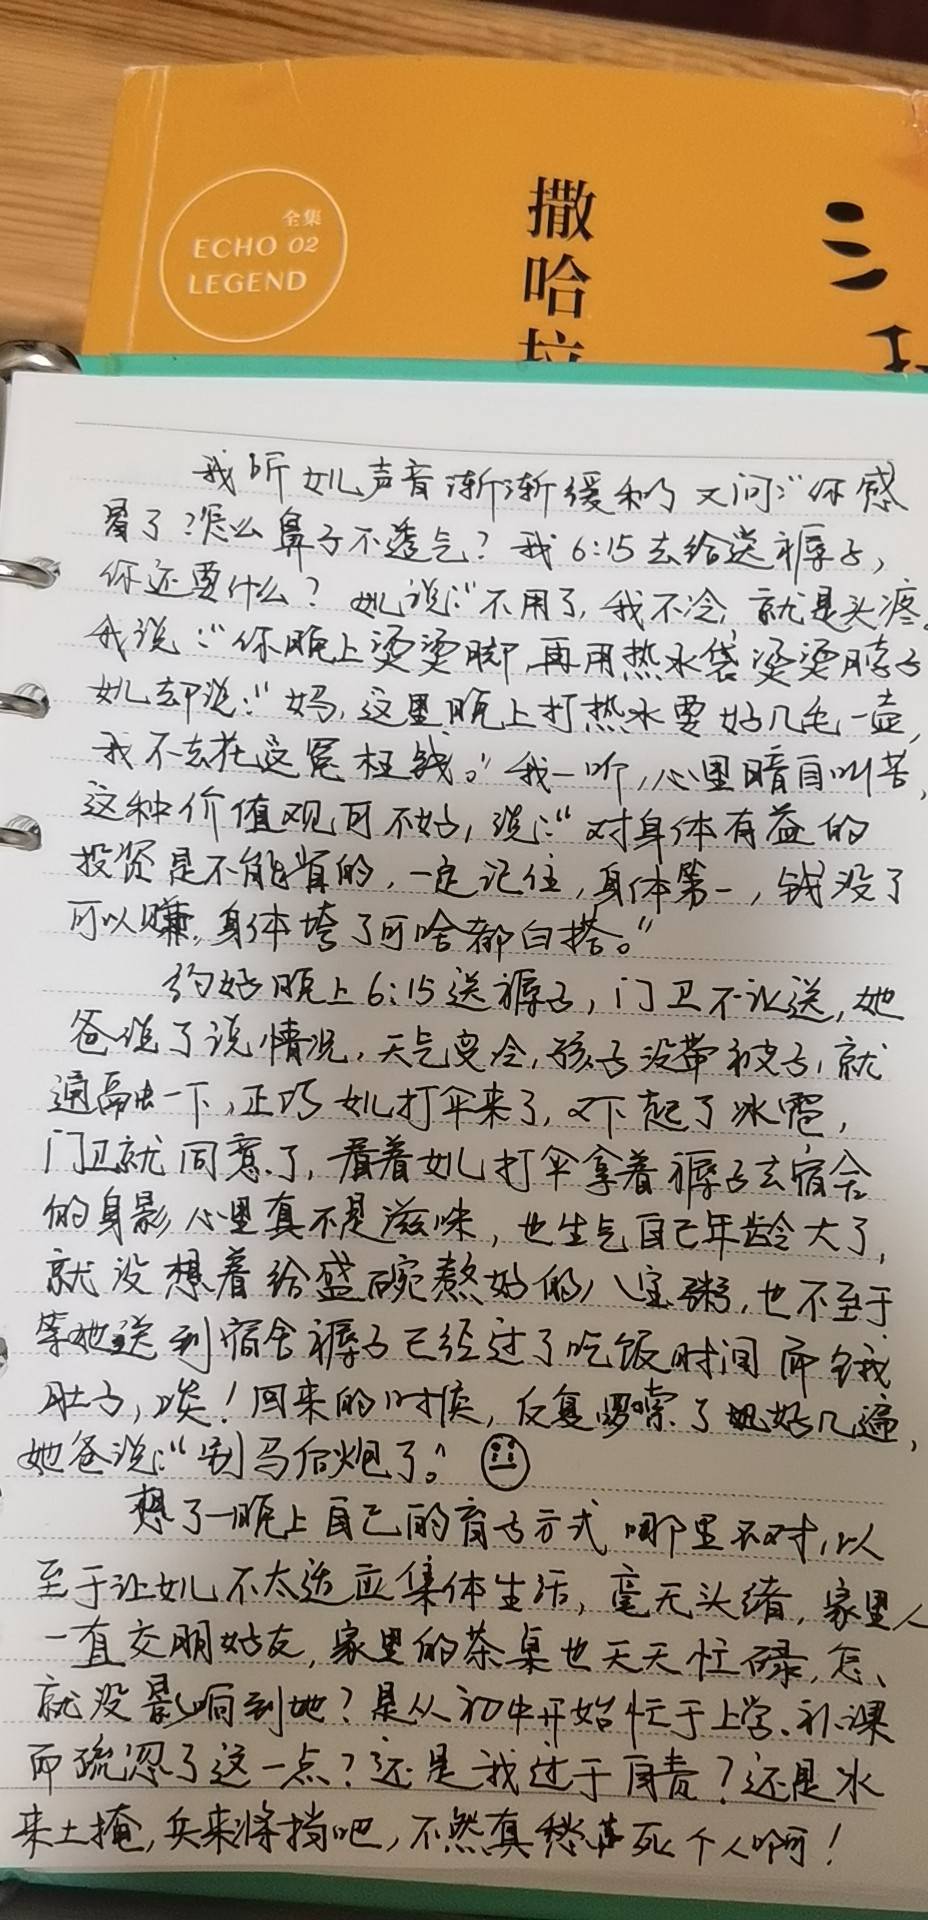 全集
ECHO 02
LEGEND
撒哈拉
三
我听女儿声音渐渐缓和了又问:“你感
冒了?怎么鼻子不透气?我6:15去给送褥子,
你还要什么?她说:“不用了,我不冷,就是头疼。
我说:“你晚上烫烫脚,再用热水袋烫烫脖子
女儿却说:“妈,这里晚上打热水要好几毛一壶,
我不去花这冤枉钱。”我一听,心里暗自叫苦,
这种价值观可不好,说:“对身体有益的
投资是不能省的,一定记住,身体第一,钱没了
可以赚,身体垮了可啥都白搭。”
约好晚上6:15送褥子,门卫不让送,她
爸说了说情况,天气变冷,孩子没带被子,就
通融一下,正巧女儿打伞来了,又下起了冰雹,
门卫就同意了,看着女儿打伞拿着褥子去宿舍
的身影心里真不是滋味,也生气自己年龄大了,
就没想着给盛碗熬好的八宝粥,也不至于
等她送到宿舍褥子已经过了吃饭时间而饿
肚子,唉!回来的时候,反复啰嗦了好几遍,
她爸说:“别马后炮了。”
想了一晚上自己的育子方式哪里不对,以
至于让女儿不太适应集体生活,毫无头绪,家里人
一直交朋好友,家里的茶桌也天天忙碌,怎、
就没影响到她?是从初中开始忙于上学、补课
而疏忽了这一点?还是我过于自责?还是水
来土掩,兵来将挡吧,不然真愁死个人啊!